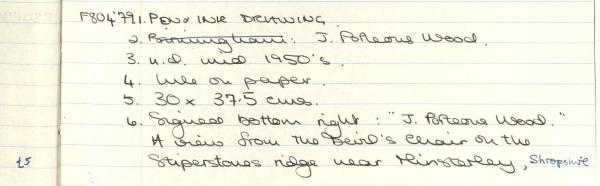 F804'79 1. PEN & INK DRAWING.
2. Birmingham: J. Porteous Wood.
3. n.d. mid 1950's.
4. Ink on paper.
5. 30 x 37.5 cms.
6. Signed bottom right: "J. Porteous Wood."
A view from the Devil's Chair on the
15 Stiperstones ridge near Minsterley, Shropshire